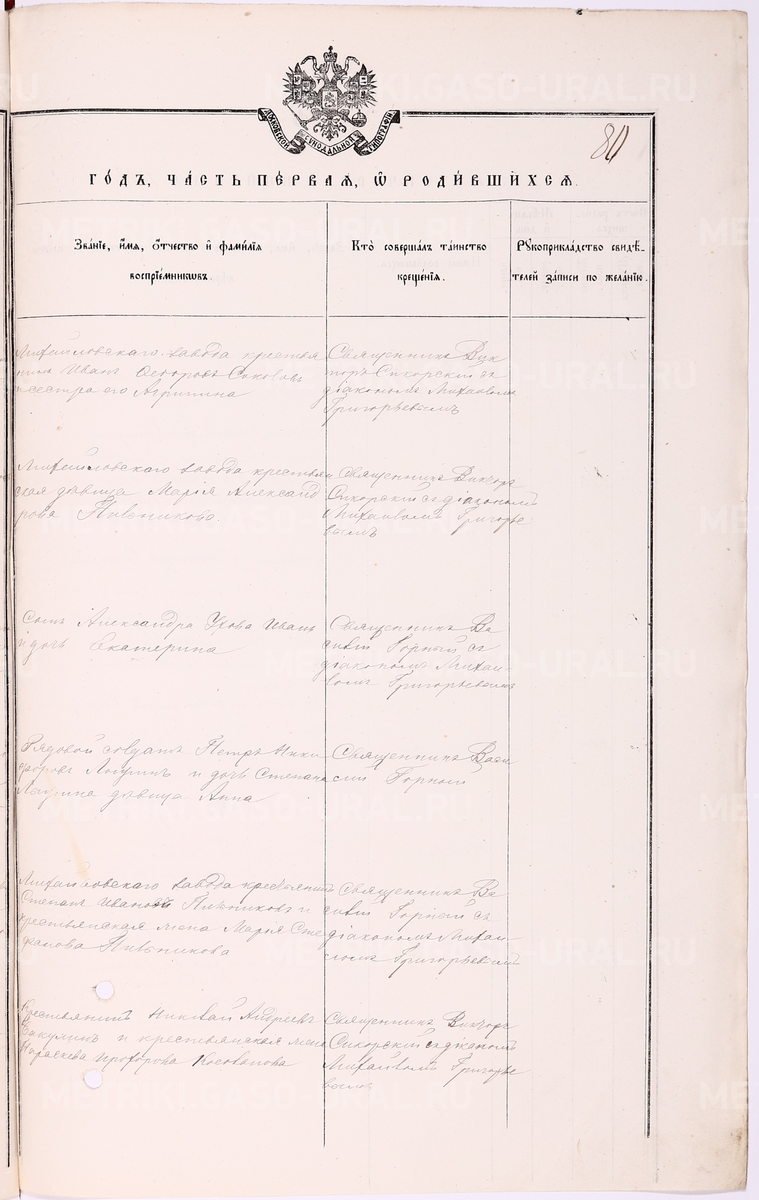 МОСКОВСКОЙ СУНОДАЛЬНОЙ ТИПОГРАФІИ
80
ГО́ДЪ, ЧА́СТЬ ПЕ́РВАЯ, Ѿ РОДИ́ВШИХСЯ.
Зва́нїе, и҆́мя, ѻ҆́тчество и҆ фами́лїя
воспрїе́мникѡвъ.
Кто̀ соверша́лъ та́инство
креще́нїя.
Рꙋкоприкла́дство свидѣ́-
телей за́писи по жела́нїю.
Михайловскаго завода крестья
нинъ Иванъ Ѳедоровъ Соколовъ
и сестра его Агрипина
Священникъ Вик
торъ Сикорскій съ
діакономъ Михаиломъ
Григорьевымъ
Михайловскаго завода крестьян
ская дѣвица Марія Александ
рова
Священникъ Викторъ
Сикорскій съ діакономъ
Михаиломъ Григорье
вымъ
Сынъ Александра Ухова Иванъ
и дочь Екатерина
Священникъ Ва
силій Горный съ
діакономъ Михаи
ломъ Григорьевымъ
Рядовой солдатъ Петръ Ники
форовъ и дочь Степана
дѣвица Анна
Священникъ Васи
лій Горный
Михайловскаго завода крестьянинъ
Степанъ Ивановъ и
крестьянская жена Марія Сте
фанова
Священникъ Ва
силій Горный съ
діакономъ Михаи
ломъ Григорьевымъ
Крестьянинъ Николай Андреевъ
Вакулинъ и крестьянская жена
Прохорова
Священникъ Викторъ
Сикорскій съ діакономъ
Михаиломъ Григорье
вымъ
METRIKI.GASO-URAL.RU